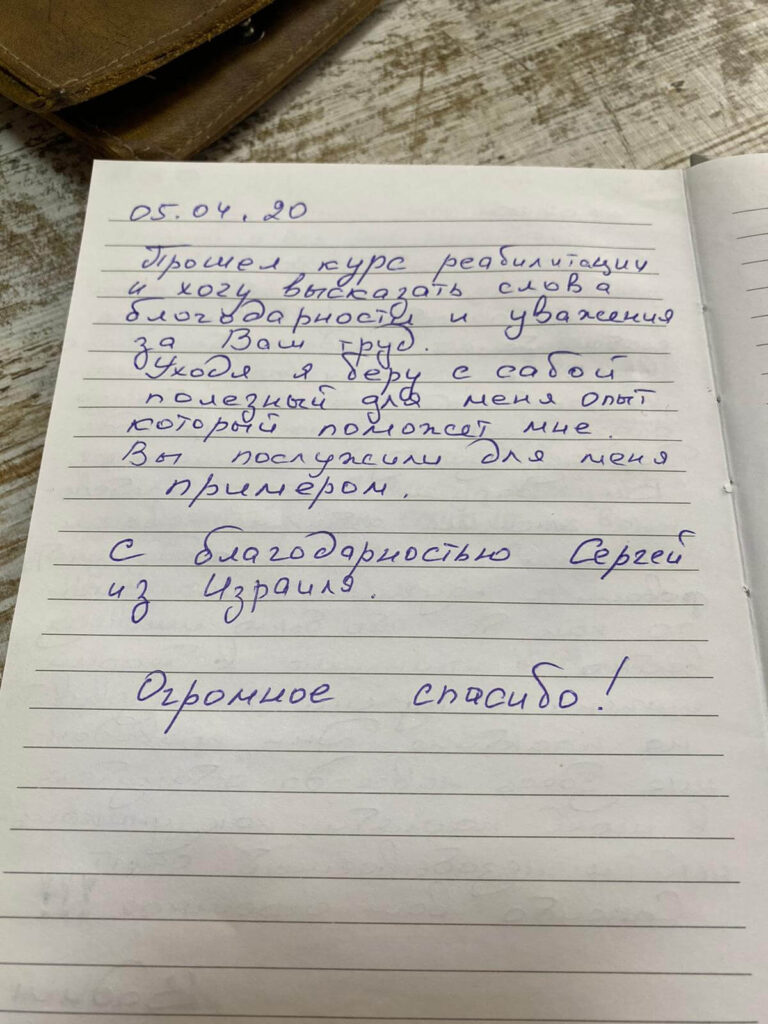 05.04.20
Прошел курс реабилитации
и хочу высказать слова
благодарности и уважения
за Ваш труд.
Уходя я беру с сабой
полезный для меня опыт
который поможет мне.
Вы послужили для меня
примером.
С благодарностью Сергей
из Израиля.
Огромное спасибо!